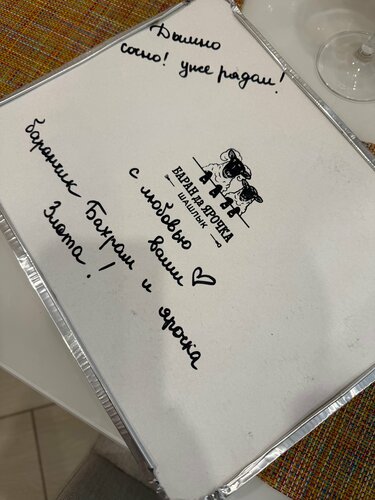 Дымно
сочно! уже рядом!
БАРАН да ЯРОЧКА
ШАШЛЫК
с любовью ваши
баранчик Бахрам и ярочка
Злата!